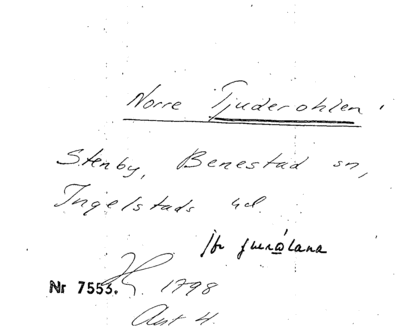 Norre Tjuderohlen
Stenby, Benestad sn,
Ingelstads hd.
jfr
Nr 7553. 1798
Akt 4.